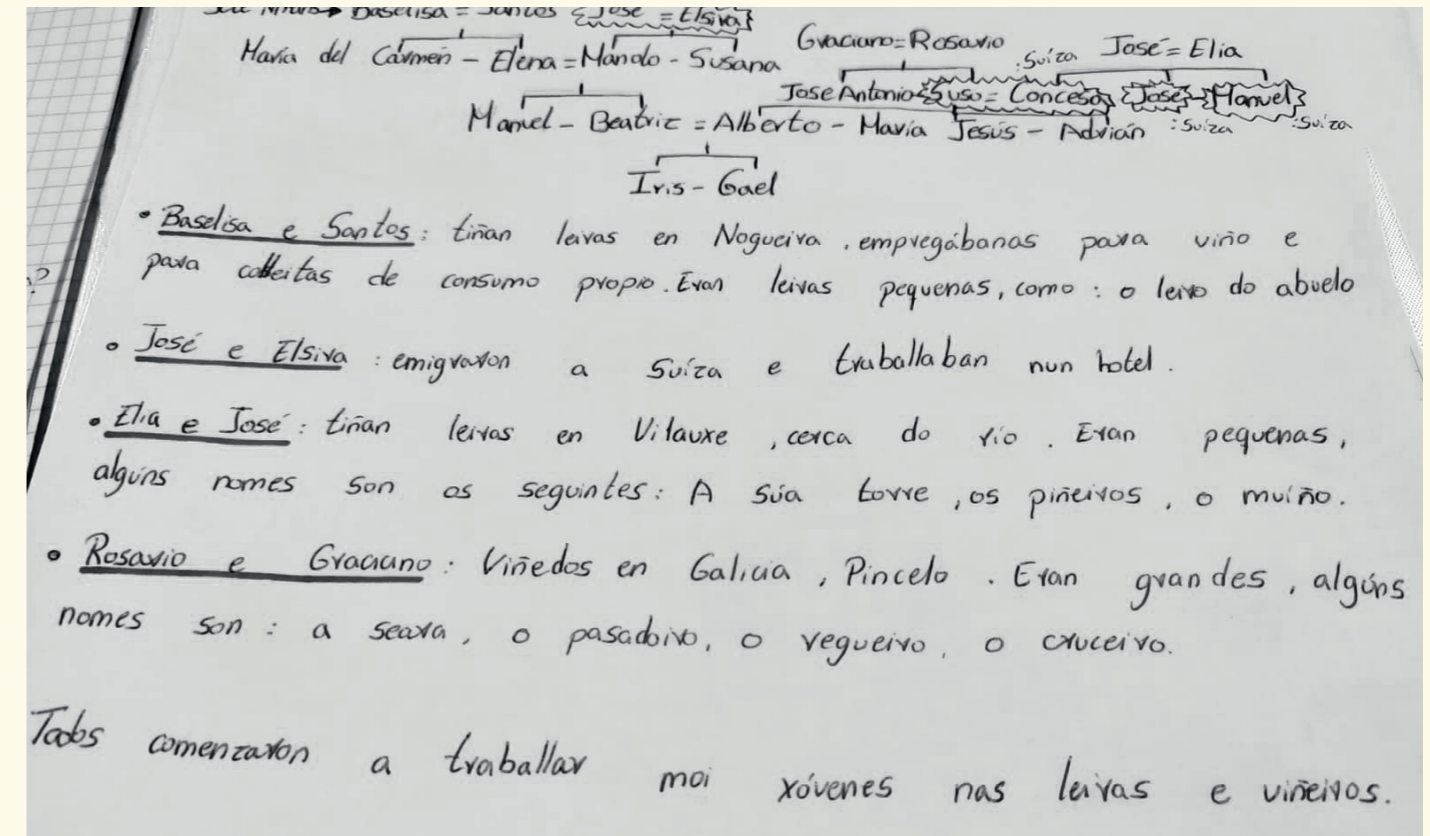 Baselisa = Santos {José = Elsira}
María del Carmen - Elena = Manolo - Susana
Graciano = Rosario
José = Elia
:Suíza
Jose Antonio - {Suso = Concesa} {José} - {Manuel}
:Suíza :Suíza
Manuel - Beatriz = Alberto - María Jesús - Adrián
Iris - Gael
• Baselisa e Santos: tiñan leiras en Nogueira, empregábanas para viño e
para colleitas de consumo propio. Eran leiras pequenas, como: o leiro do abuelo
• José e Elsira: emigraron a Suíza e traballaban nun hotel.
• Elia e José: tiñan leiras en Vilauxe, cerca do río. Eran pequenas,
algúns nomes son os seguintes: A súa torre, os piñeiros, o muíño.
• Rosario e Graciano: Viñedos en Galicia, Pincelo. Eran grandes, algúns
nomes son: a seara, o pasadoiro, o regueiro, o cruceiro.
Todos comenzaron a traballar moi xóvenes nas leiras e viñeiros.